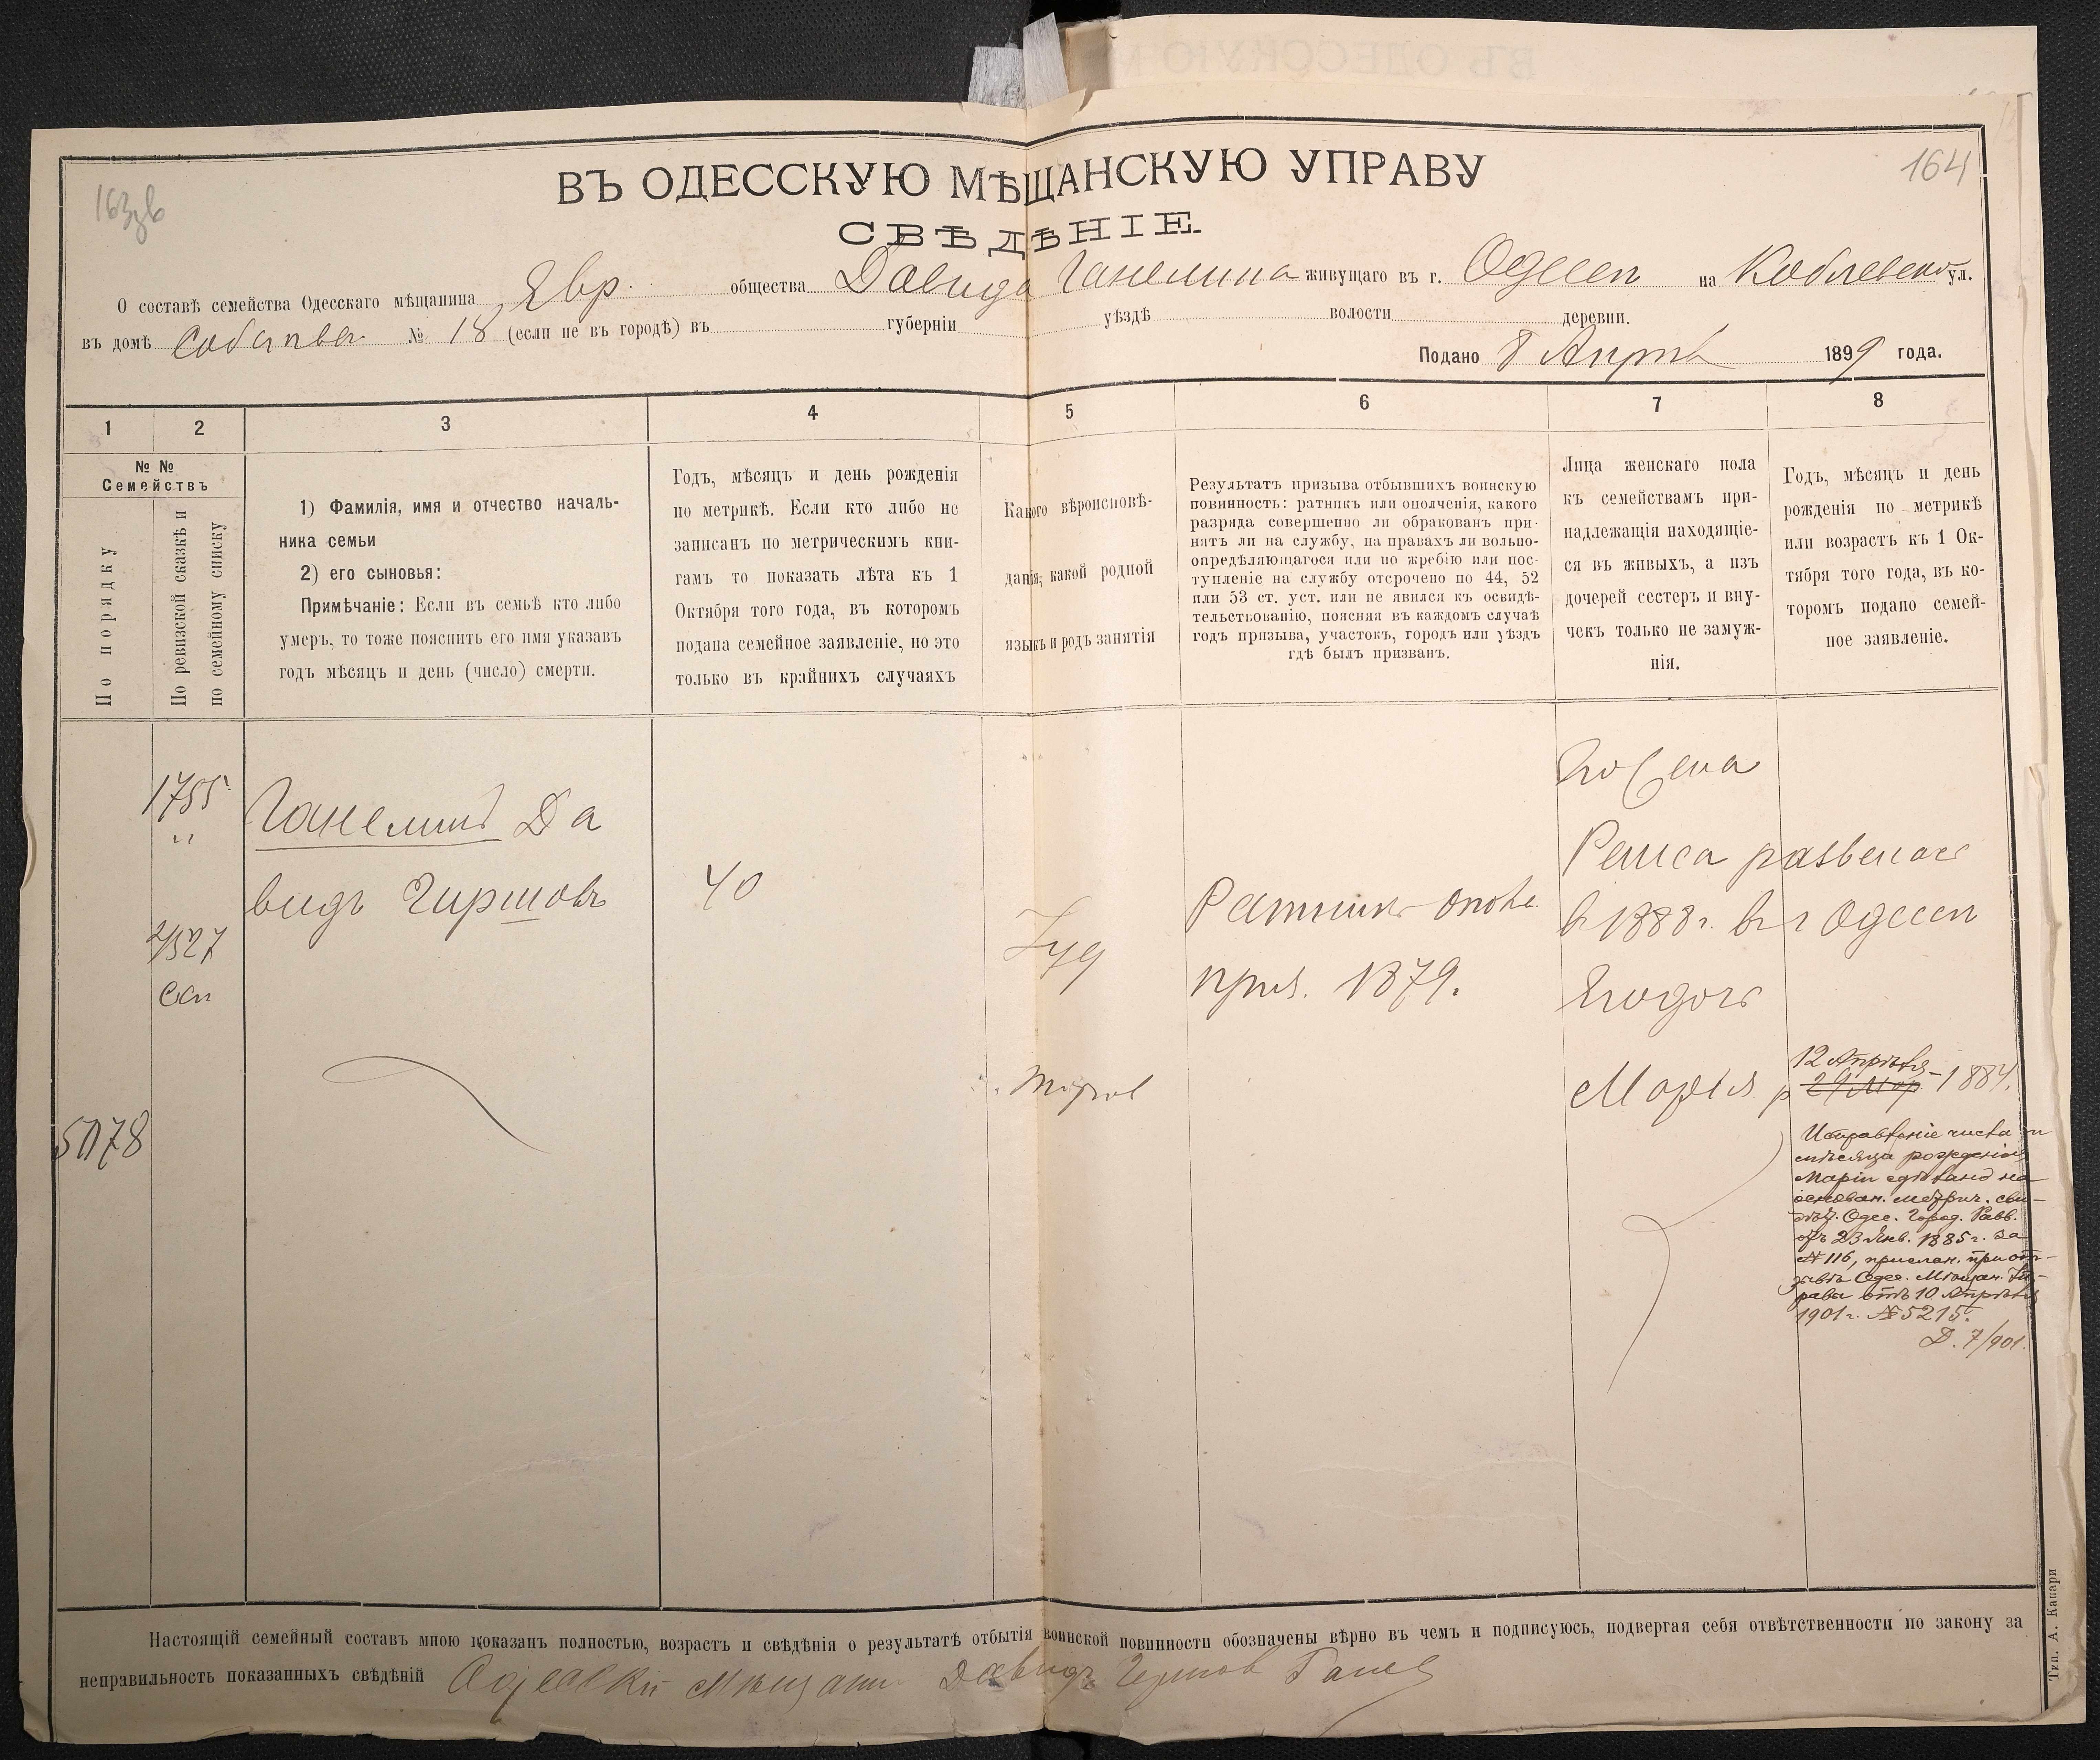 ВЪ ОДЕССКУЮ МѢЩАНСКУЮ УПРАВУ
164
СВѢДѢНІЕ.
О составѣ семейства Одесскаго мѣщанина Евр. общества Давида Ганелина живущаго въ г. Одессѣ на Коблевской ул.
въ домѣ № 18 (если не въ городѣ) въ губерніи уѣздѣ волости деревни.
Подано 8 Апрѣ 1899 года.
1 2 3 4 5 6 7 8
№ №
Семействъ
По порядку
По ревизской сказкѣ и
по семейному списку
1) Фамилія, имя и отчество началь-
ника семьи
2) его сыновья:
Примѣчаніе: Если въ семьѣ кто либо
умеръ, то тоже пояснить его имя указавъ
годъ мѣсяцъ и день (число) смерти.
Годъ, мѣсяцъ и день рожденія
по метрикѣ. Если кто либо не
записанъ по метрическимъ кни-
гамъ то показать лѣта къ 1
Октября того года, въ которомъ
подана семейное заявленіе, но это
только въ крайнихъ случаяхъ
Какого вѣроисповѣ-
данія, какой родной
языкъ и родъ занятія
Результатъ призыва отбывшихъ воинскую
повинность: ратникъ или ополченія, какого
разряда совершенно ли обракованъ при-
нятъ ли на службу, на правахъ ли вольно-
опредѣляющагося или по жребію или пос-
тупленіе на службу отсрочено по 44, 52
или 53 ст. уст. или не явился къ освидѣ-
тельствованію, поясняя въ каждомъ случаѣ
годъ призыва, участокъ, городъ или уѣздъ
гдѣ былъ призванъ.
Лица женскаго пола
къ семействамъ при-
надлежащія находящіе-
ся въ живыхъ, а изъ
дочерей сестеръ и вну-
чекъ только не замуж-
нія.
Годъ, мѣсяцъ и день
рожденія по метрикѣ
или возрастъ къ 1 Ок-
тября того года, въ ко-
торомъ подано семей-
ное заявленіе.
1755
"
2/527
5178
Ганелинъ Да
видъ Гиршовъ
40
Іуд
Торгов
Ратникъ опол.
приз. 1879.
Его жена
Раиса развелась
в 1888 г. въ г Одессѣ
Его дочь
Марія р
12 Апрѣля
29 Мар. – 1884.
Исправленіе числа и
мѣсяца рожденія
Маріи сдѣлано на
основан. метрич. сви-
дѣт. Одес. Город. Равв.
отъ 23 Янв. 1885 г. за
№ 116, прислан. при от-
зывѣ Одес. Мѣщан. Уп-
равы отъ 10 Апрѣля
1901 г. № 5215.
Д. 7/901.
Настоящій семейный составъ мною показанъ полностью, возрастъ и свѣдѣнія о результатѣ отбытія воинской повинности обозначены вѣрно въ чемъ и подписуюсь, подвергая себя отвѣтственности по закону за
неправильность показанныхъ свѣдѣній Одесскій мѣщани Давидъ Гершов Ганел
Тип. А. Капари